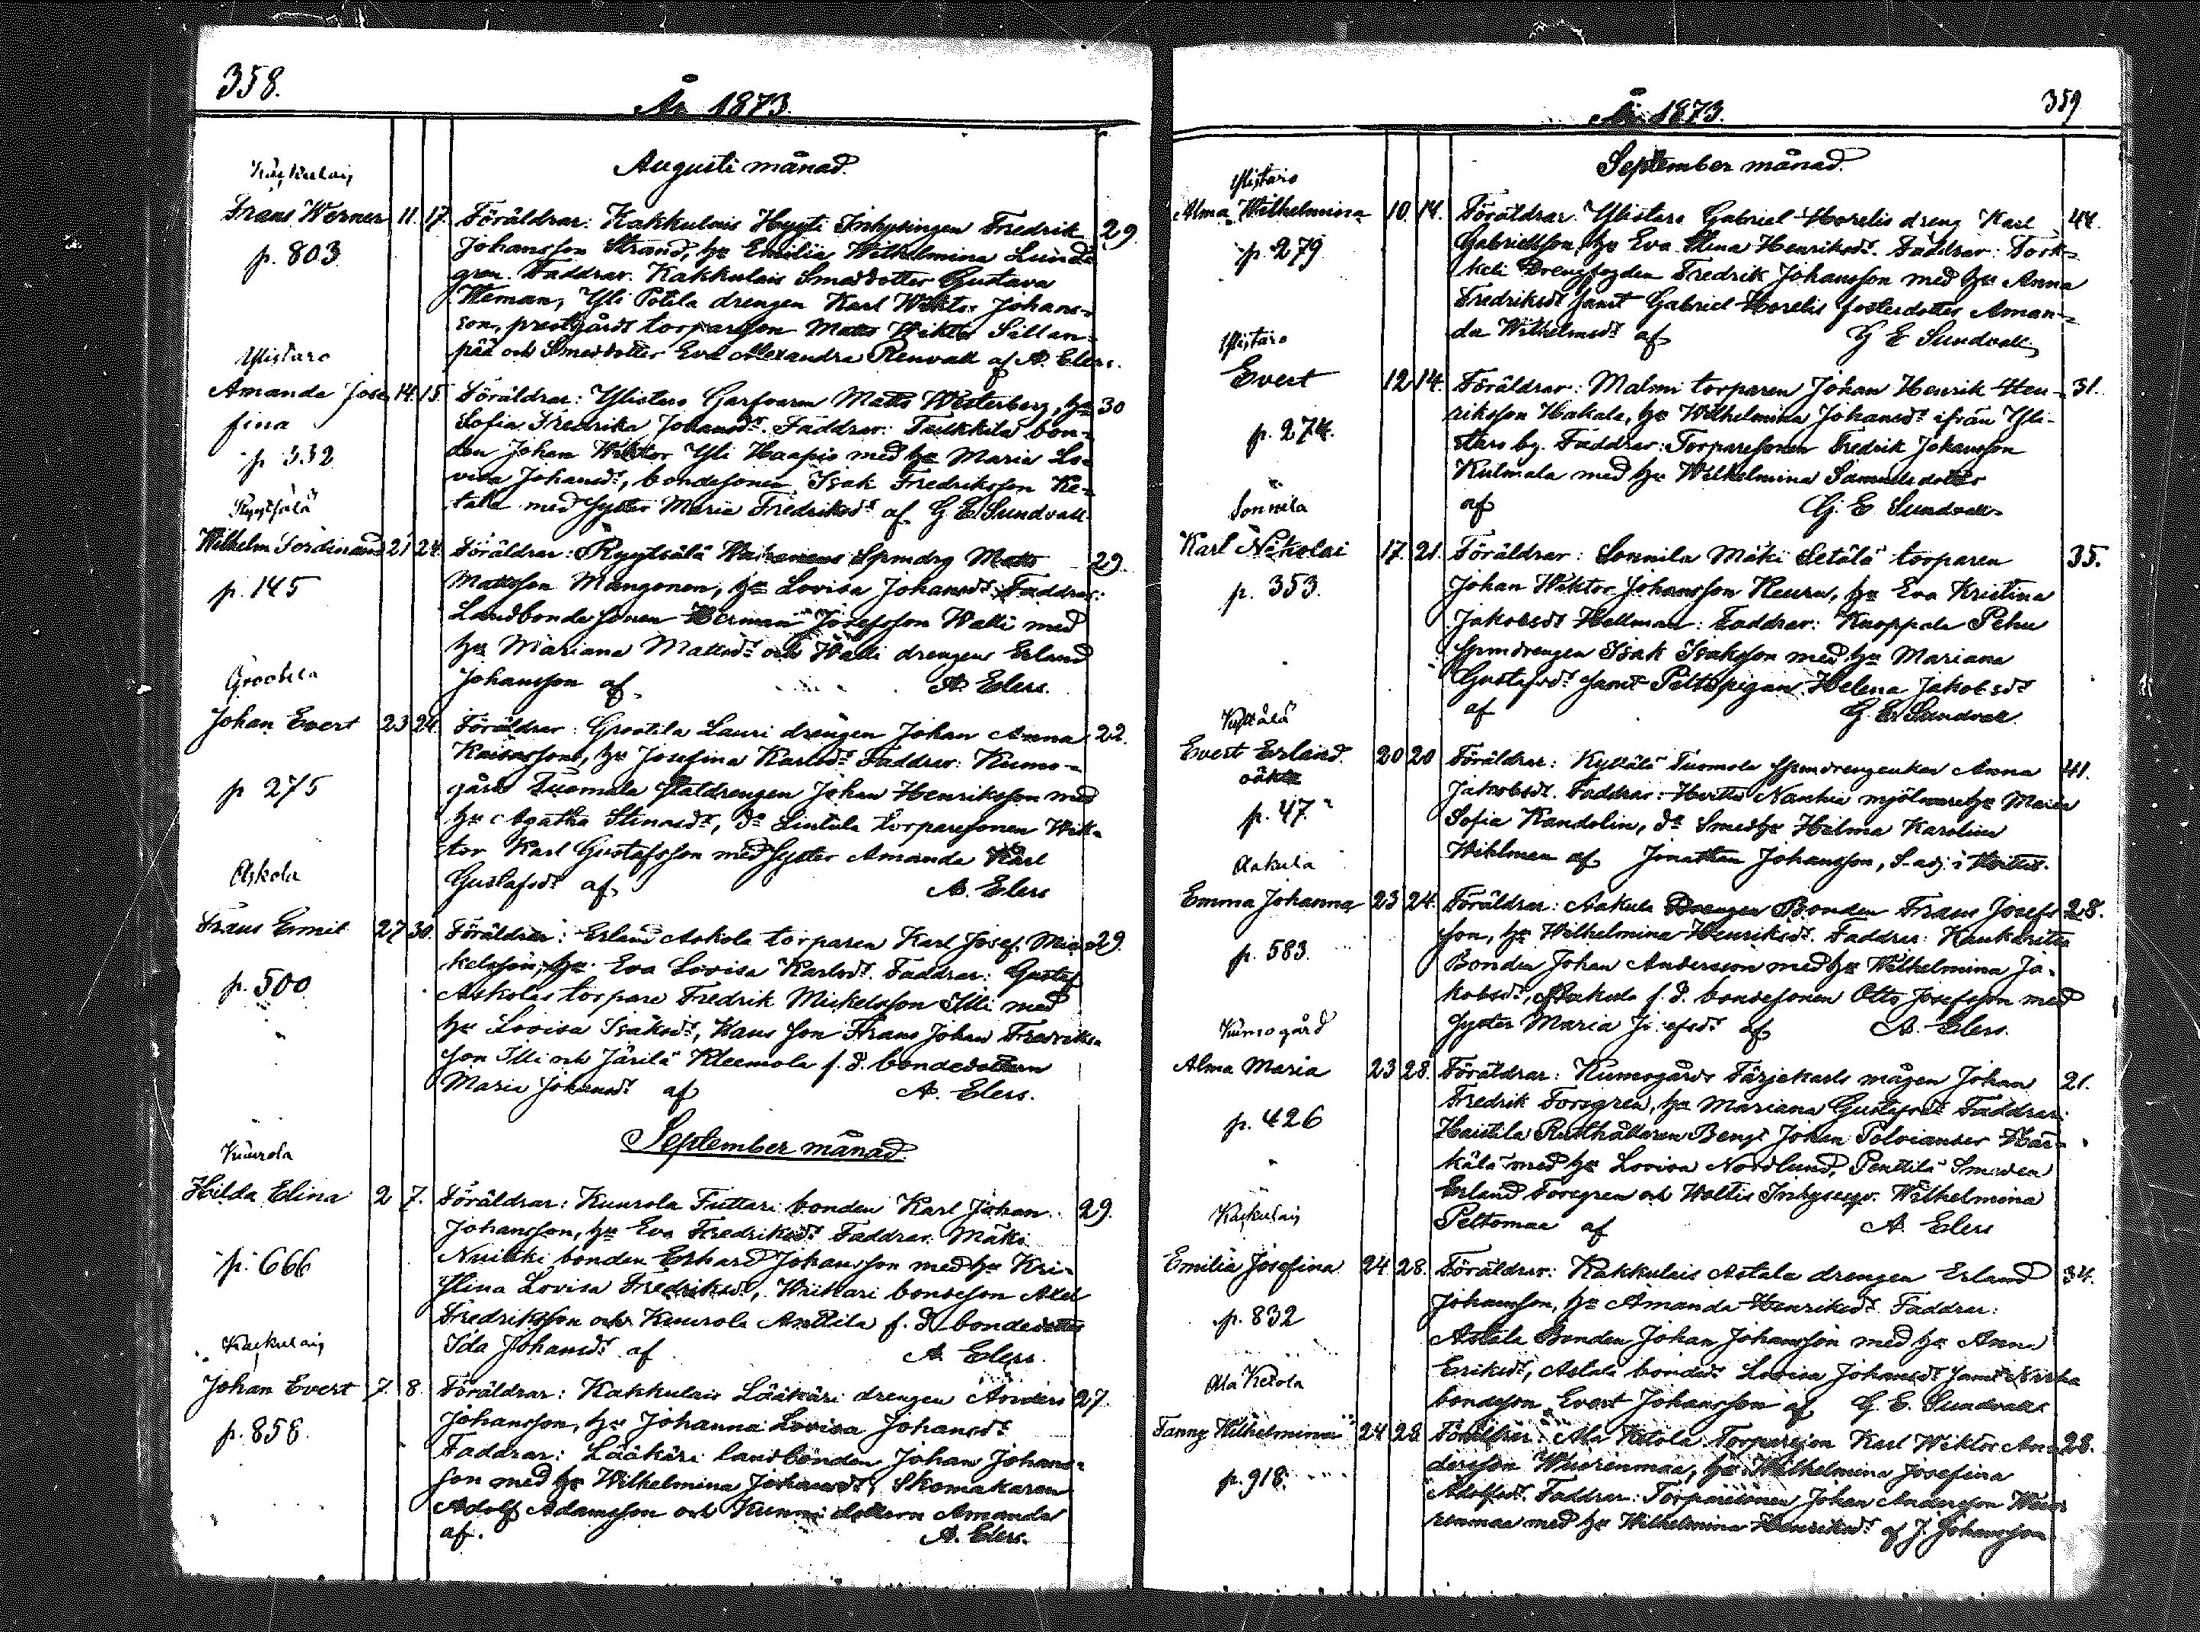 358.
År 1873.
Augusti månad.
Kakkulais
Frans Werner 11. 17. Föräldrar: Kakkulais Hygti Inhysingen Fredrik 29.
p. 803 Johansson Strand, hu Emilia Wilhelmina Lund-
gren. Faddrar. Kakkulais Smeddotter Gustava
Heman, Yli Potila drengen Karl Wiktor Johans-
son, prestgårds torpareson Matts Wiktor Sillan-
pää och Smeddotter Eva Alexandra Renvall af A. Elers.
Ylistaro
Amanda Jose 14. 15. Föräldrar: Ylistaro Garfvaren Matts Westerberg, hu 30
fina Sofia Fredrika Johansdr. Faddrar: Tulkkila bon-
p 332 den Johan Wiktor Yli Haapio med hu Maria Lo-
visa Johansdr, bondesonen Isak Fredriksson Ke-
tala med syster Maria Fredriksdr af G E Sundvall
Ryytsälä
Wilhelm Ferdinand 21 24. Föräldrar: Ryytsälä Spmdrg Matts 29.
p. 145 Mattsson Mangonen, hu Lovisa Johansdr. Faddrar:
Landbonde sonen Herman Josefsson Walli med
hu Mariana Mattsdr och Walli drengen Erland
Johansson af A. Elers.
Grootila
Johan Evert 23 24. Föräldrar: Grootila Lauri drengen Johan Anna 22.
Kaisasson, hu Josefina Karlsdr. Faddrar: Kumo-
p 275 gårds Tuomala statdrengen Johan Henriksson med
hu Agatha Stinasdr, do Lintula torparesonen Wik-
tor Karl Gustafsson med syster Amanda Karl
Gustafsdr af A. Elers
Askola
Frans Emil 27 30. Föräldrar: Erland Askola torparen Karl Josef Mi- 29.
kelsson, hu Eva Lovisa Karlsdr. Faddrar: Gustaf
p. 500 Askolas torpare Fredrik Mickelsson Illi med
hu Lovisa Isaksdr, Hans son Frans Johan Fredriks
son Illi och Järilä Kleemola f. d. bondedottern
Maria Johansdr af A. Elers.
September månad.
Kuurola
Hilda Elina 2 7. Föräldrar: Kuurola Tuttari bonden Karl Johan 29.
Johansson, hu Eva Fredriksdr. Faddrar. Mäki
p. 666 Nuikki bonden Erhard Johansson med hu Kri-
stina Lovisa Fredriksdr, Wiikari bondeson Axel
Fredriksson och Kuurola Anttila f. d. bondedotter
Ida Johansdr af A. Elers.
Kackulais
Johan Evert 7. 8. Föräldrar: Kakkulais Lääkäri drengen Anders 27.
p. 858. Johansson, hu Johanna Lovisa Johansdr.
Faddrar: Lääkäri landbonden Johan Johans-
son med hu Wilhelmina Johansdr, Skomakaren
Adolf Adamsson och Kunni dottern Amanda
af. A. Elers.
359
År 1873.
September månad.
Ylistaro
Alma Wilhelmina 10. 14. Föräldrar. Ylistaro Gabriel Horelis dreng Karl 44.
p. 279 Gabrielsson, hu Eva Stina Henriksdr. Faddrar: Sork-
keli Drengfogden Fredrik Johansson med hu Anna
Fredriksdr samt Gabriel Horelis fosterdotter Aman-
da Wilhelmsdr af G E Sundvall.
Ylistaro
Evert 12 14. Föräldrar: Malmi torparen Johan Henrik Hen- 31.
riksson Hakala, hu Wilhelmina Johansdr ifrån Yli-
p. 274. staro by. Faddrar: Torparesonen Fredrik Johansson
Kulmala med hu Wilhelmina Samuelsdotter
af G. E. Sundvall.
Sonnila
Karl Nikolai 17. 21. Föräldrar: Sonnila Mäki Setälä torparen 35.
p. 353. Johan Wiktor Johansson Keuru, hu Eva Kristina
Jakobsdr Hellman. Faddrar: Knoppala Pehu
Spmdrengen Isak Isaksson med hu Mariana
Gustafsdr samt Peltopigan Helena Jakobsdr
af G. E. Sundvall.
Kyttälä
Evert Erland 20 20 Föräldrar: Kyttälä Tuomola Spmdrengenkan Anna 41.
oäkta Jakobsdr. Faddrar: Herttis Nanhia mjölnare hu Maria
p. 47 Sofia Randolin, do Smeds hu Hilma Karolina
Wihlman af Jonathan Johansson, S. adj. i Hvittis.
Aakula
Emma Johanna 23 24. Föräldrar: Aakula Bonden Frans Josefs 28.
son, hu Wilhelmina Henriksdr. Faddrar: Kaukaritsa
p. 583. Bonden Johan Andersson med hu Wilhelmina Ja-
kobsdr, Aakula f. d. bondesonen Otto Josefsson med
syster Maria Josefsdr af A. Elers.
Kumogård
Alma Maria 23 28. Föräldrar: Kumogårds Färjekarls mågen Johan 21.
Fredrik Forsgren, hu Mariana Gustafsdr. Faddrar:
p. 426 Haistila Rusthållaren Bengt Johan Polviander Här-
kälä med hu Lovisa Nordlund, Penttilä Smeden
Erland Forsgren och Waltis Inhysesp. Wilhelmina
Peltomaa af A. Elers
Kackulais
Emilia Josefina 24. 28. Föräldrar: Kakkulais Astala drengen Erland 34.
p. 832 Johansson, hu Amanda Henriksdr. Faddrar:
Astala Bonden Johan Johansson med hu Anna
Eriksdr, Astala bondedr Lovisa Johansdr samt
bondeson Evert Johansson af G. E. Sundvall
Ala Ketola
Fanny Wilhelmina 24 28. Föräldrar: Ala Ketola Torpareson Karl Wiktor An- 28.
p. 918. dersson Wuorenmaa, hu Wilhelmina Josefina
Adolfsdr. Faddrar: Torparesonen Johan Andersson Wuo
renmaa med hu Wilhelmina Henriksdr af J. Johansson